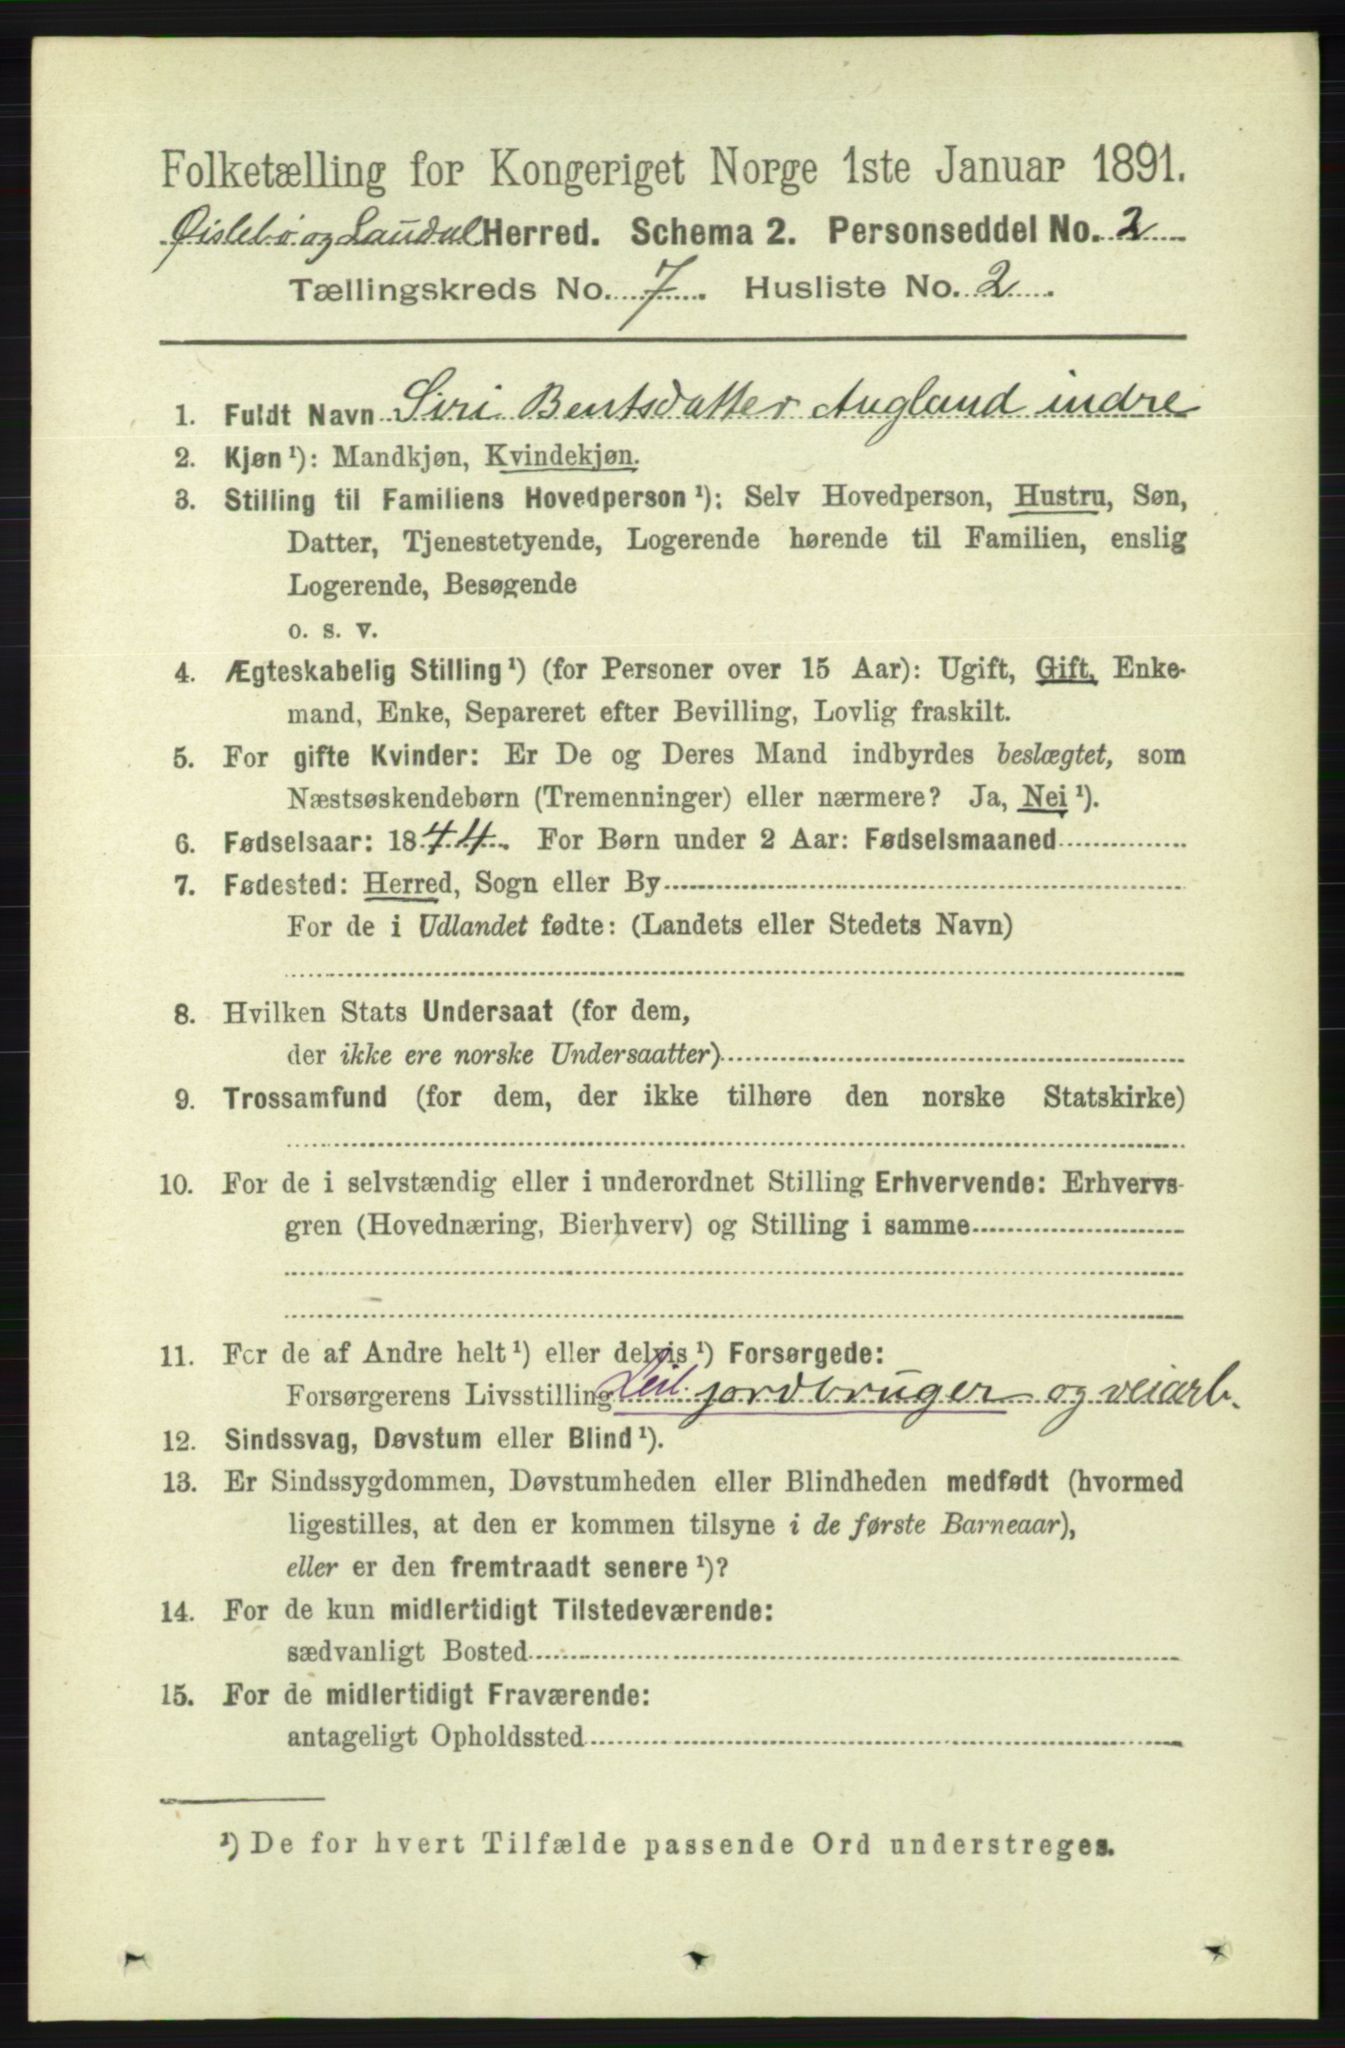 Folketælling for Kongeriget Norge 1ste Januar 1891.
Øislebø og Laudal Herred. Schema 2. Personseddel No. 2
Tællingskreds No. 7. Husliste No. 2.
1. Fuldt Navn Siri Bentsdatter Augland indre
2. Kjøn¹): Mandkjøn, Kvindekjøn.
3. Stilling til Familiens Hovedperson¹): Selv Hovedperson, Hustru, Søn,
Datter, Tjenestetyende, Logerende hørende til Familien, enslig
Logerende, Besøgende
o. s. v.
4. Ægteskabelig Stilling¹) (for Personer over 15 Aar): Ugift, Gift, Enke-
mand, Enke, Separeret efter Bevilling, Lovlig fraskilt.
5. For gifte Kvinder: Er De og Deres Mand indbyrdes beslægtet, som
Næstsøskendebørn (Tremenninger) eller nærmere? Ja, Nei¹).
6. Fødselsaar: 1844. For Børn under 2 Aar: Fødselsmaaned
7. Fødested: Herred, Sogn eller By
For de i Udlandet fødte: (Landets eller Stedets Navn)
8. Hvilken Stats Undersaat (for dem,
der ikke ere norske Undersaatter)
9. Trossamfund (for dem, der ikke tilhøre den norske Statskirke)
10. For de i selvstændig eller i underordnet Stilling Erhvervende: Erhvervs-
gren (Hovednæring, Bierhverv) og Stilling i samme
11. For de af Andre helt¹) eller delvis¹) Forsørgede:
Forsørgerens Livsstilling Leil. jordbruger og veiarb.
12. Sindssvag, Døvstum eller Blind¹).
13. Er Sindssygdommen, Døvstumheden eller Blindheden medfødt (hvormed
ligestilles, at den er kommen tilsyne i de første Barneaar),
eller er den fremtraadt senere¹)?
14. For de kun midlertidigt Tilstedeværende:
sædvanligt Bosted
15. For de midlertidigt Fraværende:
antageligt Opholdssted
¹) De for hvert Tilfælde passende Ord understreges.